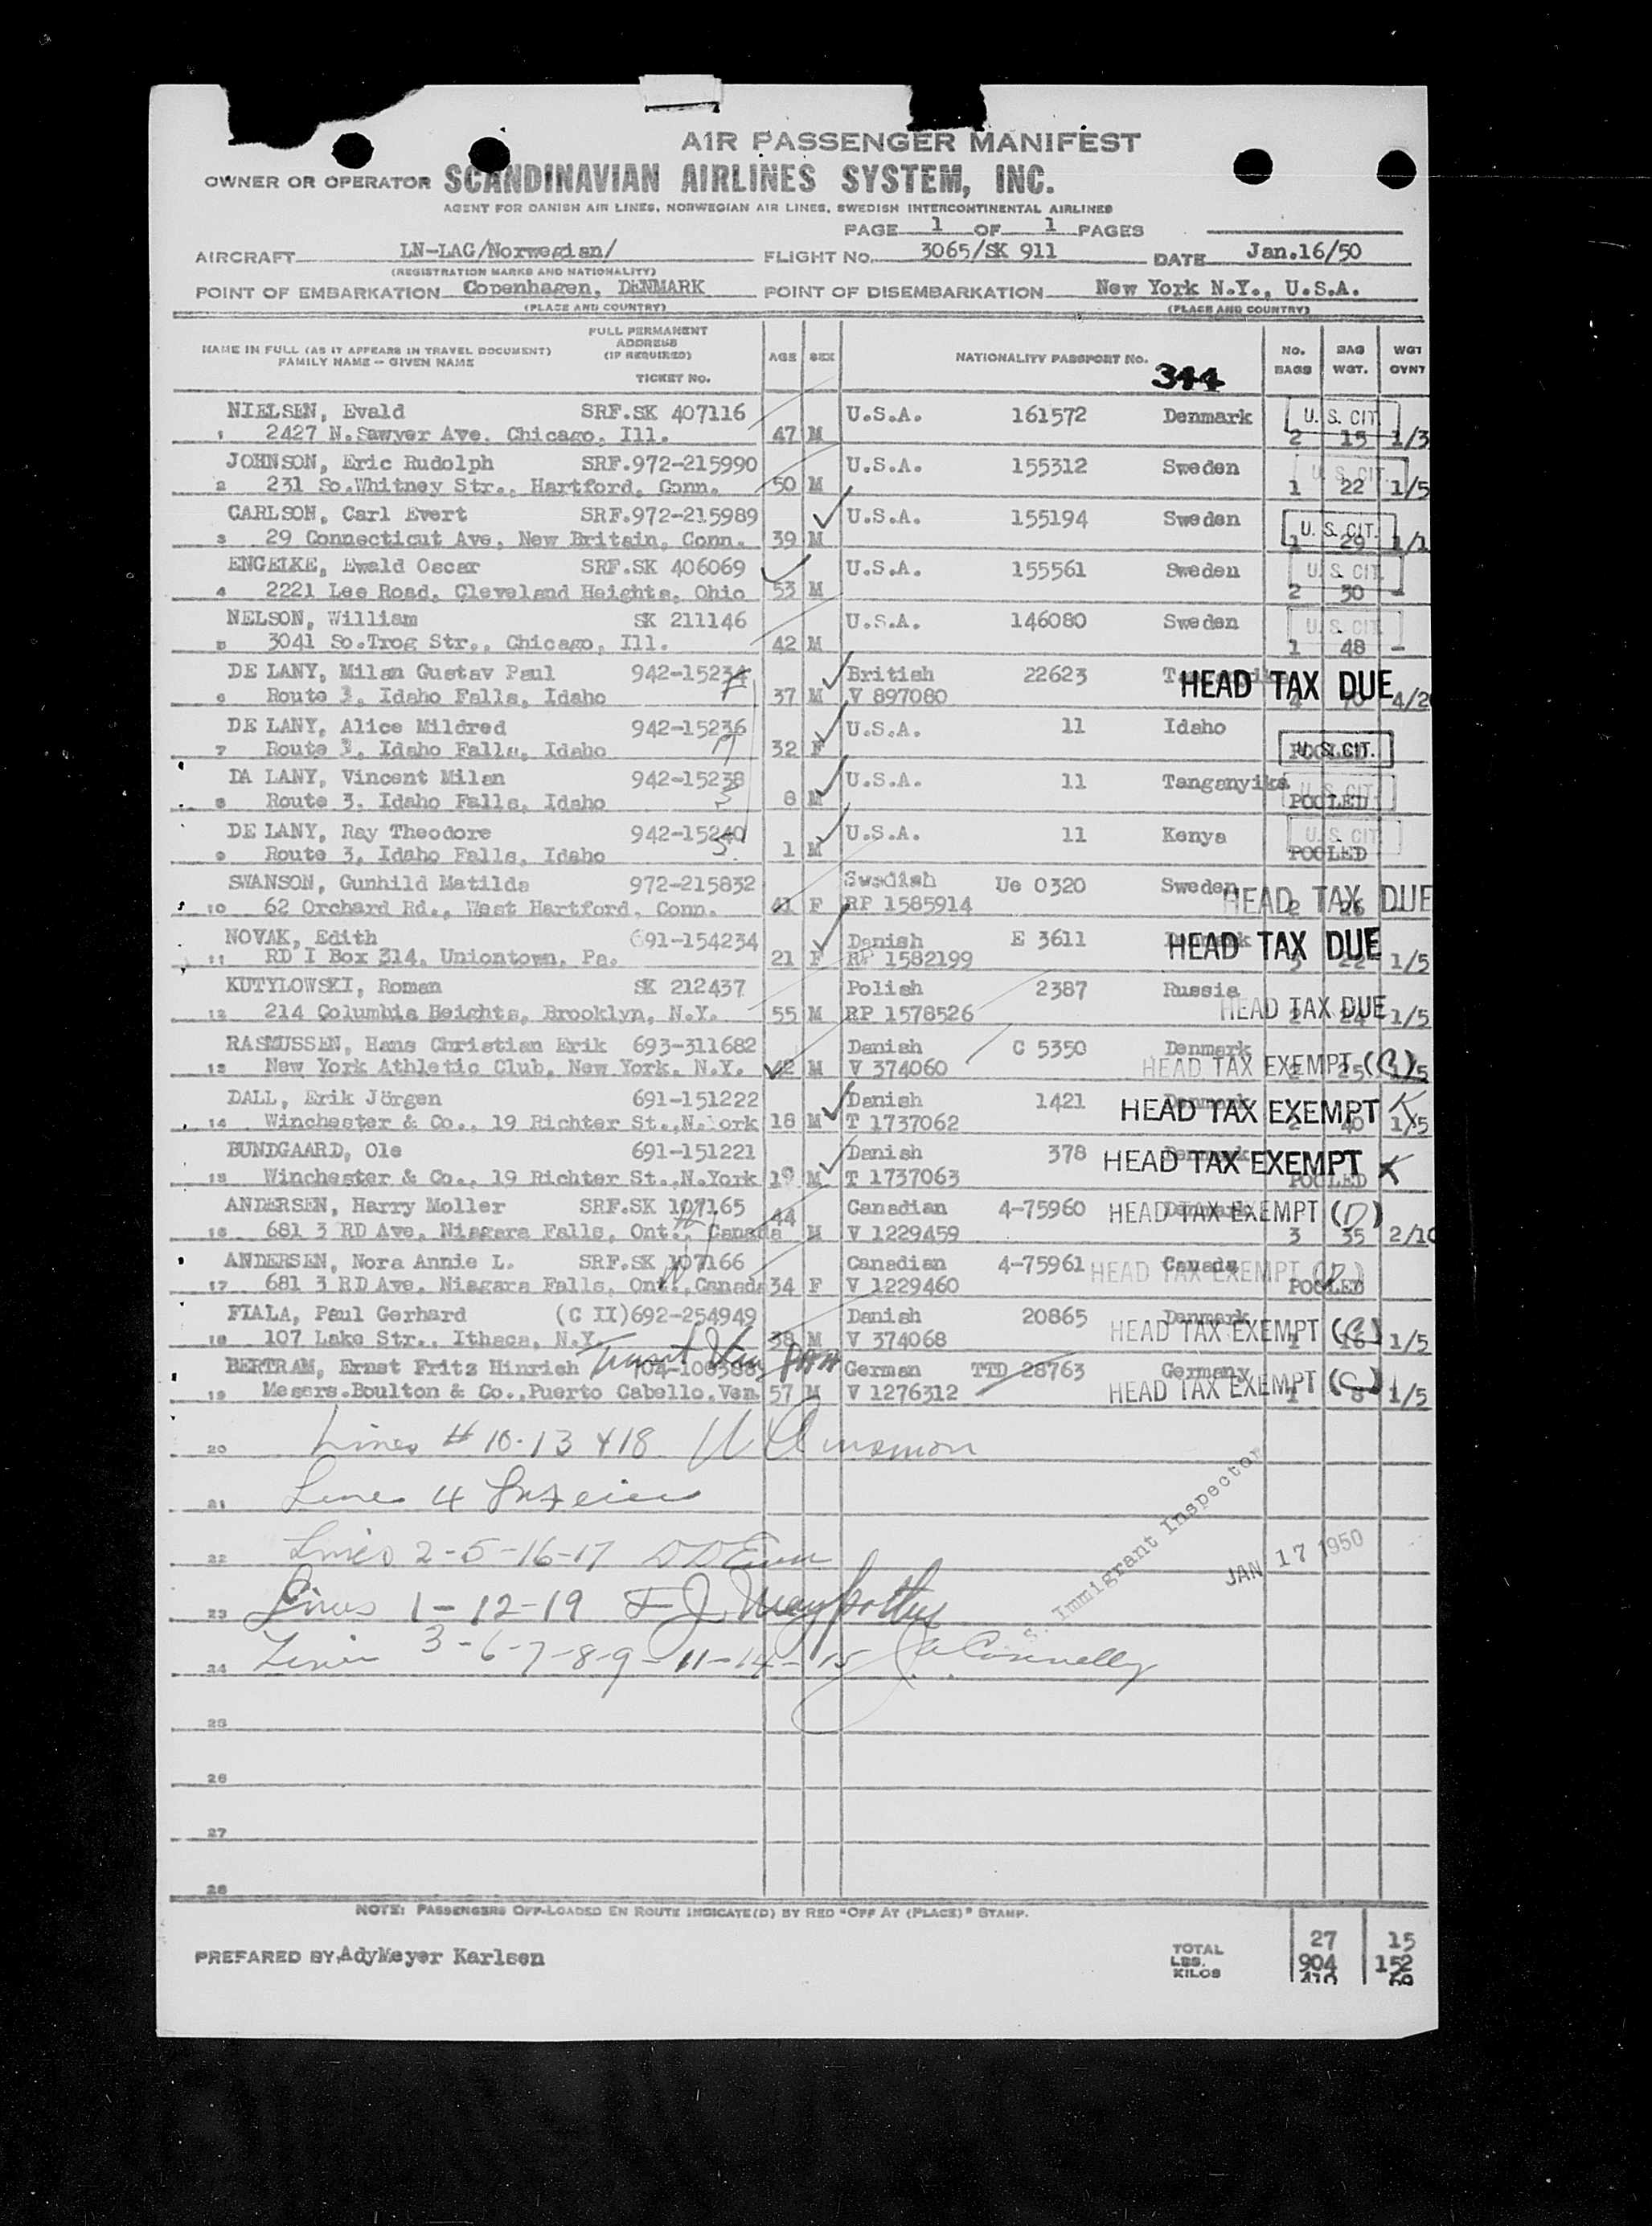 AIR PASSENGER MANIFEST
OWNER OR OPERATOR SCANDINAVIAN AIRLINES SYSTEM, INC.
AGENT FOR DANISH AIR LINES, NORWEGIAN AIR LINES, SWEDISH INTERCONTINENTAL AIRLINES
PAGE 1 OF 1 PAGES
AIRCRAFT LN-LAG/Norwegian/ FLIGHT NO. 3065/SK 911 DATE Jan.16/50
(REGISTRATION MARKS AND NATIONALITY)
POINT OF EMBARKATION Copenhagen, DENMARK POINT OF DISEMBARKATION New York N.Y., U.S.A.
(PLACE AND COUNTRY) (PLACE AND COUNTRY)
NAME IN FULL (AS IT APPEARS IN TRAVEL DOCUMENT) FAMILY NAME - GIVEN NAME FULL PERMANENT ADDRESS (IF REQUIRED) TICKET NO. AGE SEX NATIONALITY PASSPORT NO. NO. BAGS BAG WGT. WGT OVWT
344
NIELSEN, Evald SRF.SK 407116 U.S.A. 161572 Denmark U. S. CIT
1 2427 N.Sawyer Ave. Chicago, Ill. 47 M 2 15 1/3
JOHNSON, Eric Rudolph SRF.972-215990 U.S.A. 155312 Sweden U. S. CIT.
2 231 So.Whitney Str., Hartford, Conn. 50 M 1 22 1/5
CARLSON, Carl Evert SRF.972-215989 U.S.A. 155194 Sweden U. S. CIT.
3 29 Connecticut Ave, New Britain, Conn. 39 M 1 29 1/1
ENGELKE, Ewald Oscar SRF.SK 406069 U.S.A. 155561 Sweden U. S. CIT.
4 2221 Lee Road, Cleveland Heights, Ohio 53 M 2 30 -
NELSON, William SK 211146 U.S.A. 146080 Sweden U. S. CIT.
5 3041 So.Trog Str., Chicago, Ill. 42 M 1 48 -
DE LANY, Milan Gustav Paul 942-15234 British 22623 HEAD TAX DUE
6 Route 3, Idaho Falls, Idaho 37 M V 897080 4 70 4/20
DE LANY, Alice Mildred 942-15236 U.S.A. 11 Idaho U. S. CIT.
7 Route 3, Idaho Falls, Idaho 32 F POOLED
DA LANY, Vincent Milan 942-15238 U.S.A. 11 Tanganyika U. S. CIT.
8 Route 3, Idaho Falls, Idaho 8 M POOLED
DE LANY, Ray Theodore 942-15240 U.S.A. 11 Kenya U. S. CIT
9 Route 3, Idaho Falls, Idaho 1 M POOLED
SWANSON, Gunhild Matilda 972-215832 Swedish Ue 0320 Sweden HEAD TAX DUE
10 62 Orchard Rd., West Hartford, Conn. 41 F RP 1585914 2 26
NOVAK, Edith 691-154234 Danish E 3611 Denmark HEAD TAX DUE
11 RD I Box 314, Uniontown, Pa. 21 F RP 1582199 3 22 1/5
KUTYLOWSKI, Roman SK 212437 Polish 2387 Russia HEAD TAX DUE
12 214 Columbia Heights, Brooklyn, N.Y. 55 M RP 1578526 2 24 1/5
RASMUSSEN, Hans Christian Erik 693-311682 Danish C 5350 Denmark HEAD TAX EXEMPT (C)
13 New York Athletic Club, New York, N.Y. 42 M V 374060 2 25 1/5
DALL, Erik Jörgen 691-151222 Danish 1421 Denmark HEAD TAX EXEMPT K
14 Winchester & Co., 19 Richter St.,N.York 18 M T 1737062 2 40 1/5
BUNDGAARD, Ole 691-151221 Danish 378 Denmark HEAD TAX EXEMPT K
15 Winchester & Co., 19 Richter St.,N.York 19 M T 1737063 POOLED
ANDERSEN, Harry Moller SRF.SK 107165 44 Canadian 4-75960 Denmark HEAD TAX EXEMPT (D)
16 681 3 RD Ave, Niagara Falls, Ont., Canada M V 1229459 3 35 2/10
ANDERSEN, Nora Annie L. SRF.SK 107166 Canadian 4-75961 Canada HEAD TAX EXEMPT (D)
17 681 3 RD Ave, Niagara Falls, Ont., Canada 34 F V 1229460 POOLED
FIALA, Paul Gerhard (C II)692-254949 Danish 20865 Denmark HEAD TAX EXEMPT (C)
18 107 Lake Str., Ithaca, N.Y. 38 M V 374068 1 16 1/5
BERTRAM, Ernst Fritz Hinrich 704-108388 Transit PAA German TTD 28763 Germany HEAD TAX EXEMPT (C)
19 Messrs.Boulton & Co.,Puerto Cabello,Ven. 57 M V 1276312 1 8 1/5
20 Lines # 10-13 & 18
21 Line 4
22 Lines 2-5-16-17
23 Lines 1-12-19
24 Lines 3-6-7-8-9-11-14-15 Connelly
Immigrant Inspector
JAN 17 1950
25
26
27
28
NOTE: PASSENGERS OFF-LOADED EN ROUTE INDICATE(D) BY RED "OFF AT (PLACE)" STAMP.
PREPARED BY AdyMeyer Karlsen
TOTAL 27 15
LBS. 904 152
KILOS 410 69